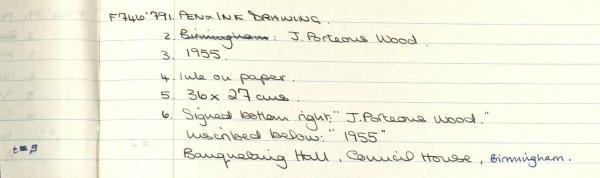 F746'791. PEN & INK DRAWING.
2. Birmingham: J. Porteous Wood.
3. 1955.
4. Ink on paper.
5. 36 x 27 cms.
6. Signed bottom right: "J. Porteous Wood."
Inscribed below: "1955"
Banqueting Hall, Council House, Birmingham.